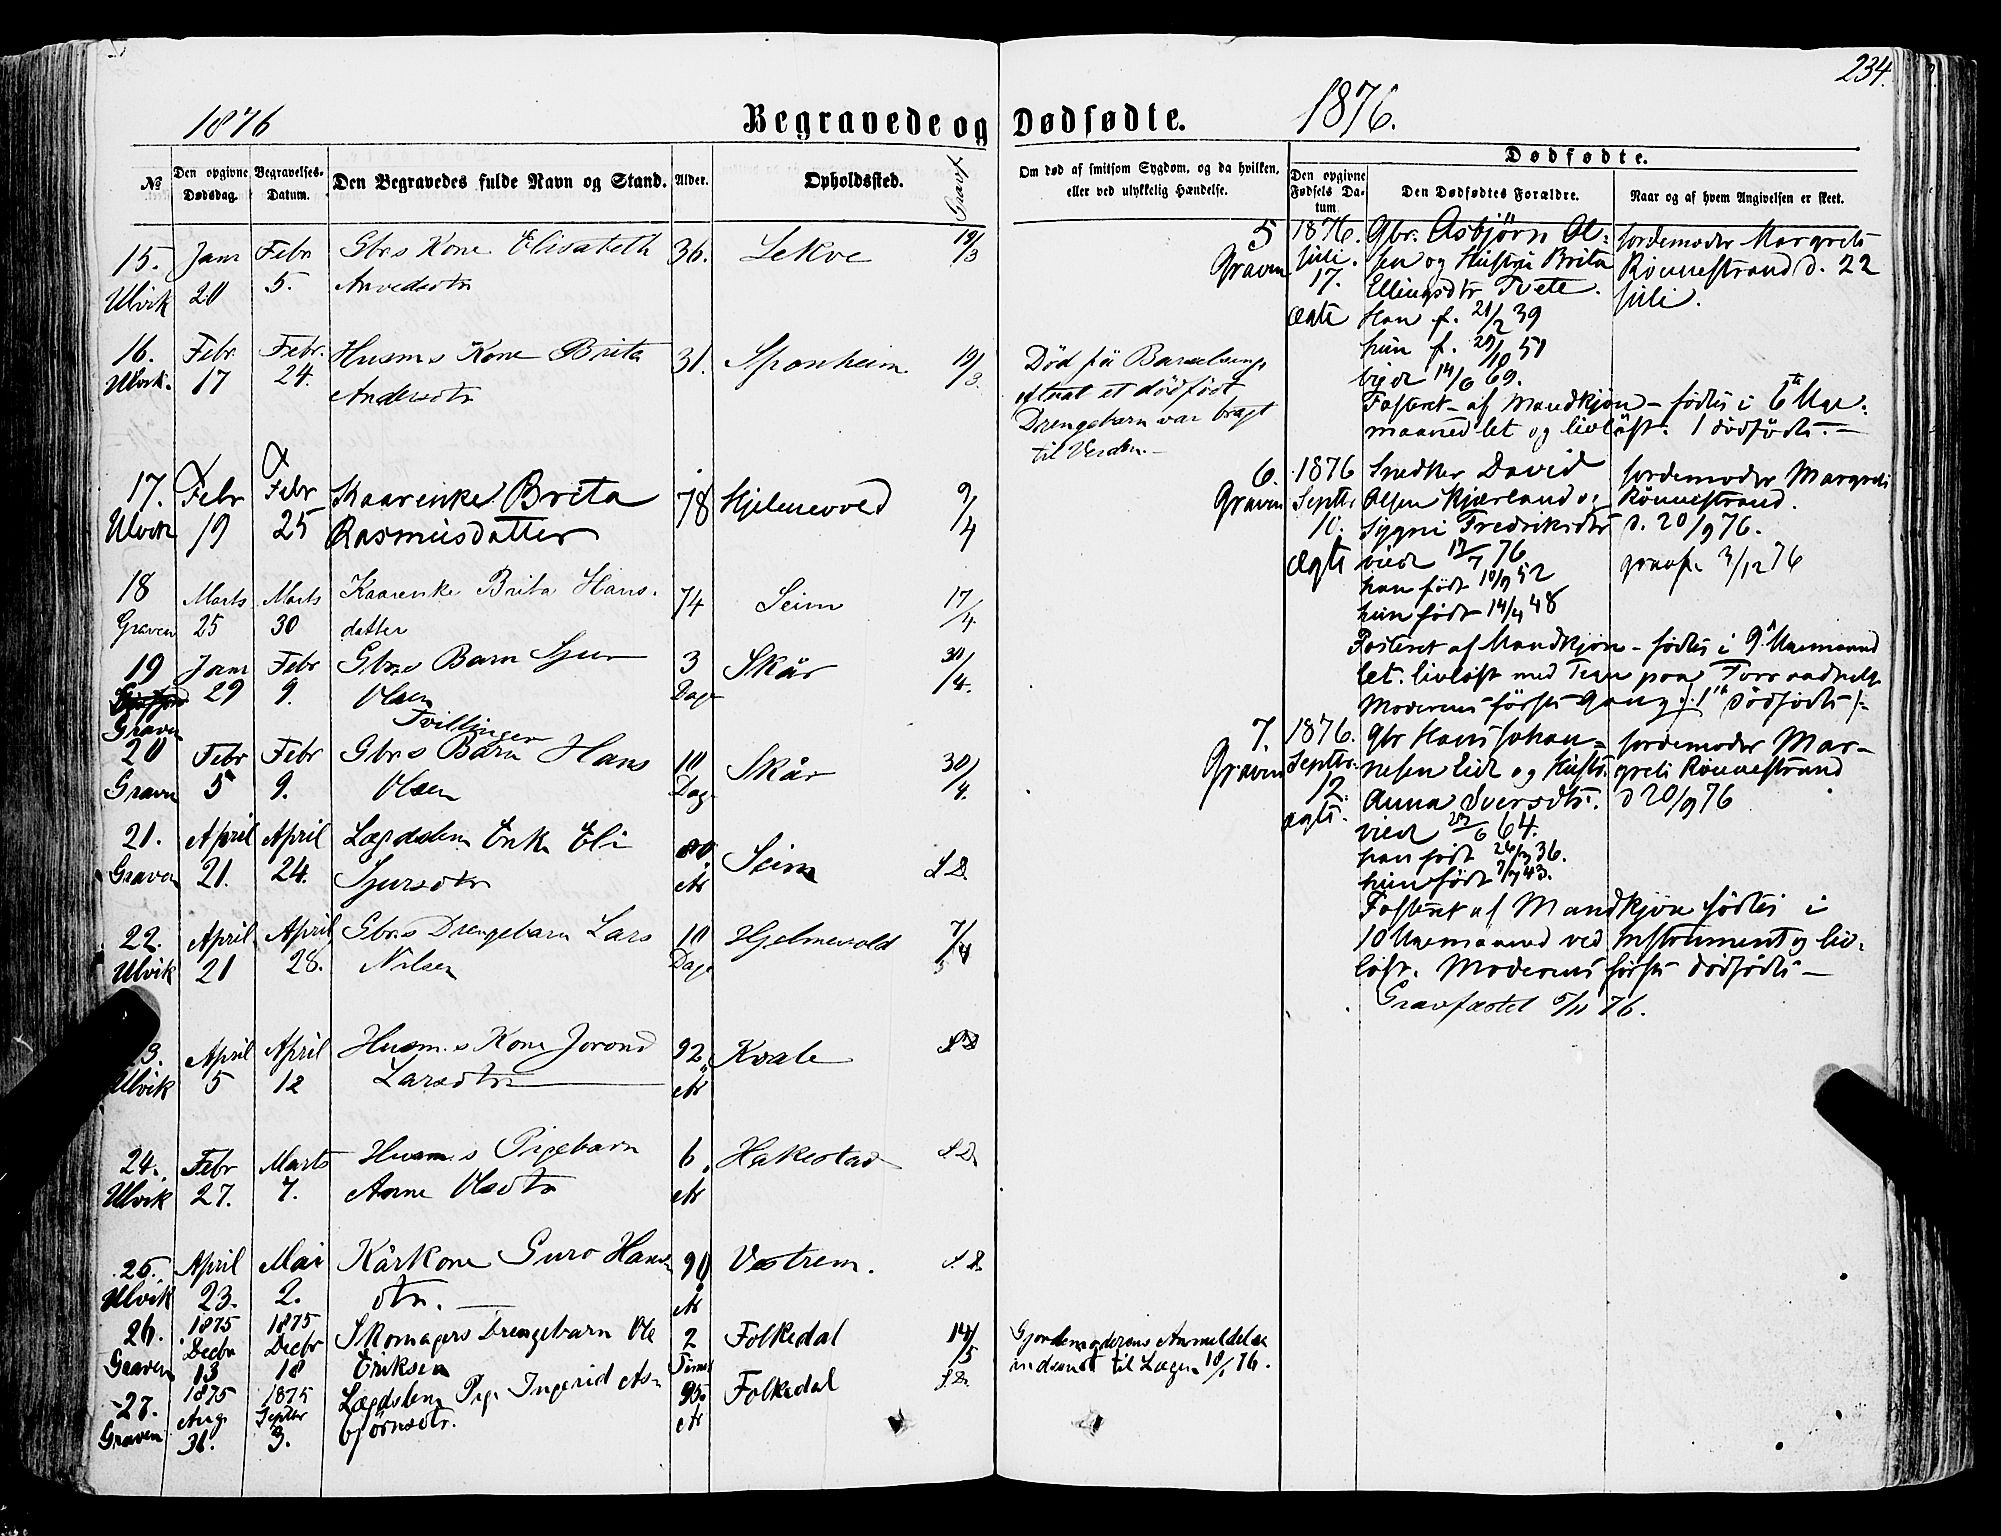 234.
1876
Begravede og Dødfødte.
1876.
№
Den opgivne Dødsdag.
Begravelses-Datum.
Den Begravedes fulde Navn og Stand.
Alder.
Opholdssted.
Gravf.
Om død af smitsom Sygdom, og da hvilken, eller ved ulykkelig Hændelse.
Dødfødte.
Den opgivne Fødsels Datum
Den Dødfødtes Forældre.
Naar og af hvem Angivelsen er skeet.
15. Janr Febr Gbrs Kone Elisabeth 36. Lekve 19/3
Ulvik 20 5. Arvedsdtr
16. Febr. Febr. Husm s Kone Brita 31. Sponheim 19/3.
Ulvik. 17 24. Andersdtr
Død på Barselseng
efterat et dødfødt
Drengebarn var bragt
til Verden.—
17. Febr Febr Kaarenke Brita 78 Hjelmevold 9/4
Ulvik 19 25 Rasmusdatter
18 Marts Marts Kaarenke Brita Hans- 74 Seim 17/4
Graven 25 30 datter
19 Janr Febr Gbrs Barn Sjur 3 Skår 30/4.
29 9. Olsen Dage
Graven Tvillinger
20 Febr Febr Gbrs Barn Hans 10 Skår 30/4.
Graven 5 9. Olsen Dag
21. April April Lægdslem Enke Eli 80 Seim S D.
Graven 21. 24. Sjursdtr År
22. April April Gbrs Drengebarn Lars 10 Hjelmevold 7/
Ulvik 21 28. Nilsen Dage
3. April April Husm. s Kone Jorond 92 Kvale
Ulvik 5 12 Larsdtr År
24. Febr Marts Husm. s Pigebarn 6 Hakestad S D.
Ulvik 27. 7. Anne Olsdtr År
25. April Mai Kårkone Guro Hans 90 Vestrem. S. D.
Ulvik 23. 2. dtr.— År
26. 1875 1875 Skomagers Drengebarn Ole 2 Folkedal 14/5
Graven Decbr 13 Decbr 18 Eriksen Timer
Gjordemoderens Anmeldelse
indsendt til Lægen 18/1 76.
27. 1875 1875 Lægdslem Pige Ingerid As- 95 Folkedal S D.
Graven Aug. 31. Septbr 3. bjørnsdtr. År
5 1876. Gbr. Asbjørn Ol- Jordemoder Margrete
Graven Juli. sen og Hustru Brita Rønnestrand d. 22
17. Ellingsdtr Tvete. Juli.
ægte Han f. 21/2 39
hun f. 29/10 51
viede 14/6 69.
Fosteret af Mandkjøn – fødtes i 6te Uge-
maanedlet og livløst. 1 dødfødte.—
6. 1876 Snedker David Jordemoder Margrete
Graven Septbr. Olsen Kjærland og Rønnestrand.
10. Sygni Fredriksdtr d. 20/9 76.
Ægte viede 12/7 76 gravf. 3/12 76
han født 10/9 52
hun født 14/4 48
Fosteret af Mandkjøn – fødtes i 9
let. livløst med Tegn paa Forraadnelse
Moderens første Gang
7. 1876. Gbr Hans Johan- Jordemoder Mar-
Graven Septbr. nesen Eide og Hustr. grete Rønnestrand
12. Anna Iversdtr. d 20/9 76
ægte. viede 29/6 64.
han født 26/3 36.
hun født 7/7 43.
Fosteret af Mandkjøn fødtes i
10 Uremaaned ved Instrument og liv-
løst. Moderens første dødfødte—
Gravfæstet 5/11 76.